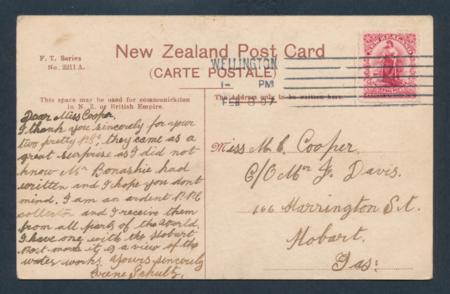 F. T. Series
No. 2211A.
New Zealand Post Card
(CARTE POSTALE)
WELLINGTON
1- PM
FEB 8 07
This space may be used for communication
in N. Z. or British Empire.
The Address only to be written here.
Dear Miss Cooper,
I thank you sincerely for your
two pretty P.Cs; they came as a
great surprise as I did not
know Mr Bonashie had
written and I hope you dont
mind. I am an ardent P.P.C
collector and I receive them
from all parts of the World.
I have one with the Hobart
Post-mark it is a view of the
water works. Yours sincerely
Irene Schultz.
Miss M. C. Cooper.
C/O Mr J. Davis.
166 Harrington St.
Hobart.
Tas: